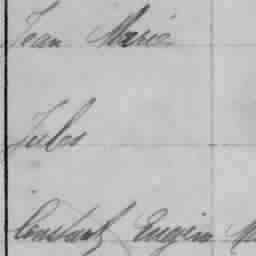 Jean Marie
Jules
Constant Eugène